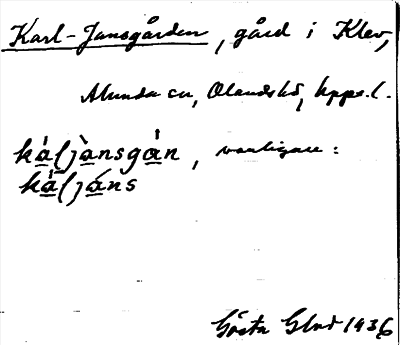 Karl-Jansgården, gård i Klev,
Alunda sn, Olandshd, Upps. l.
káljànsgàn, vanligare:
káljáns
Gösta Glad 1936